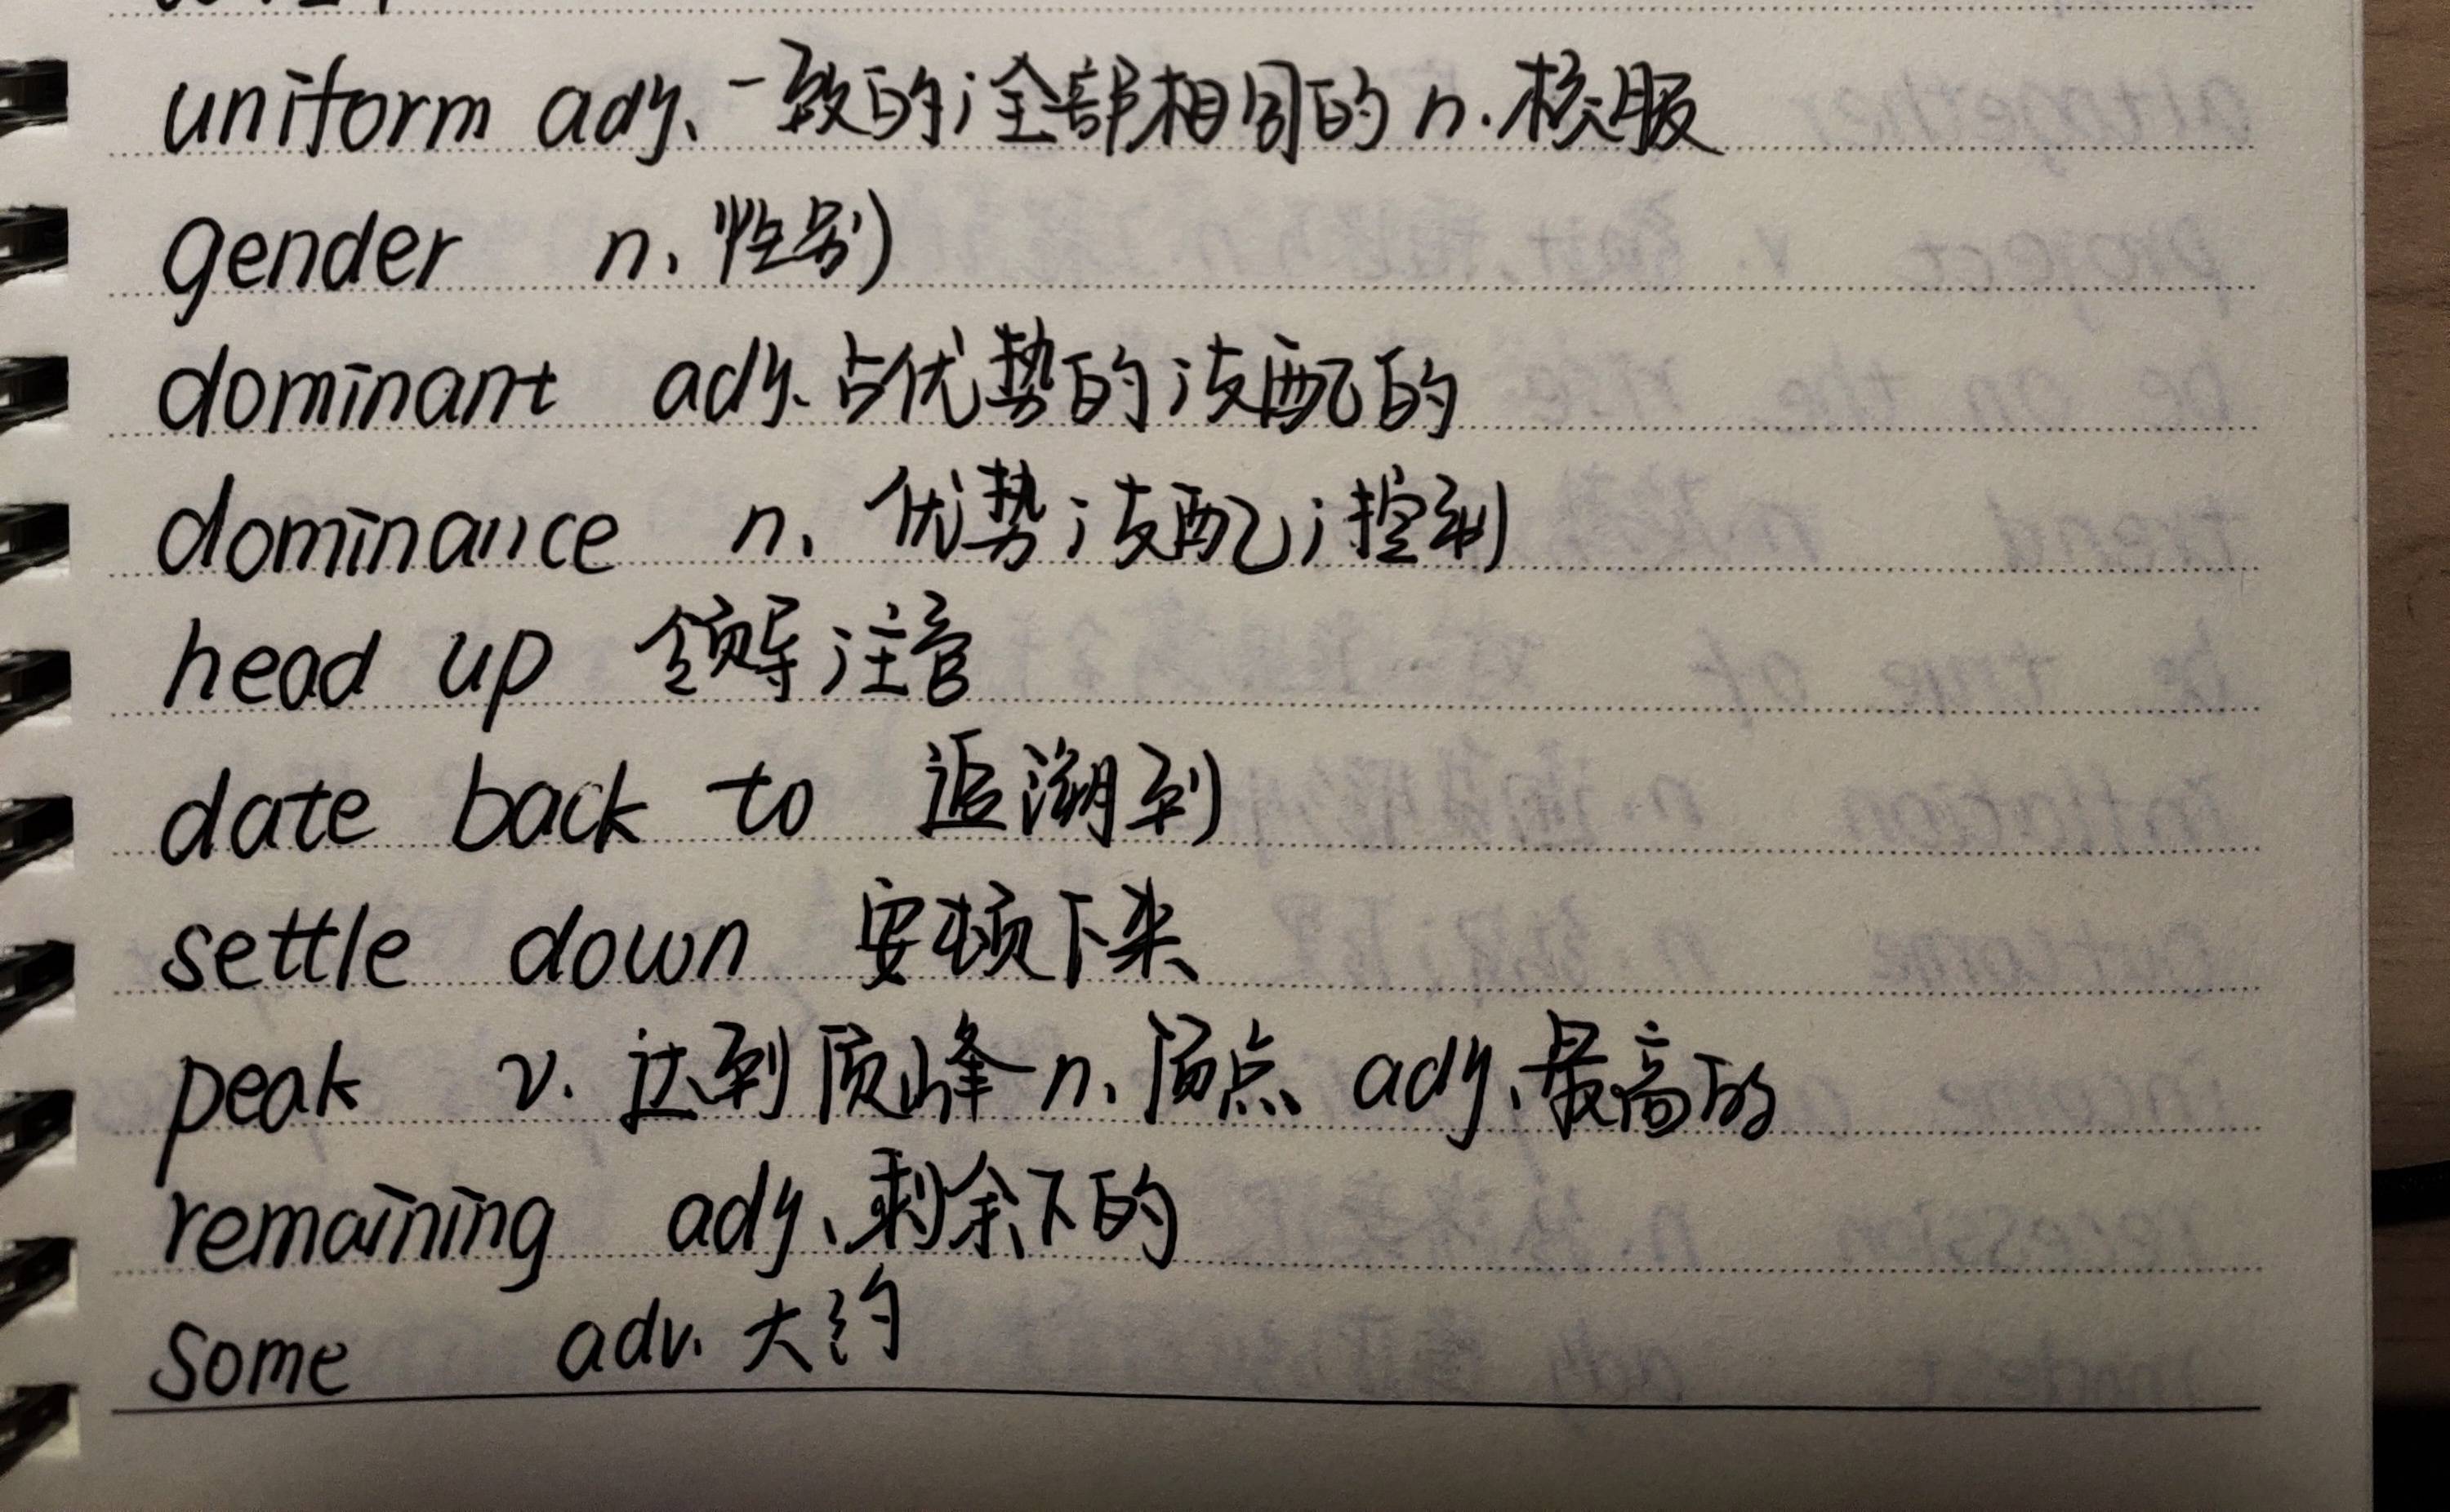 uniform adj. 一致的;全部相同的 n. 校服
gender n. 性别
dominant adj. 占优势的;支配的
dominance n. 优势;支配;控制
head up 领导;注意
date back to 追溯到
settle down 安顿下来
peak v. 达到顶峰 n. 顶点 adj. 最高的
remaining adj. 剩余下的
some adv. 大约